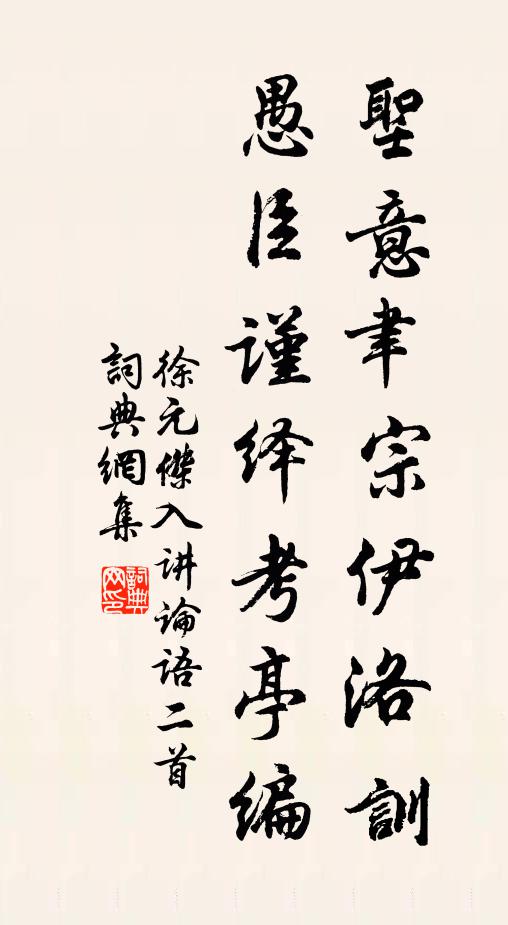 聖意聿宗伊洛訓
愚臣謹绎考亭編
徐元傑入讲論語二首
詞典網集
詞典网印